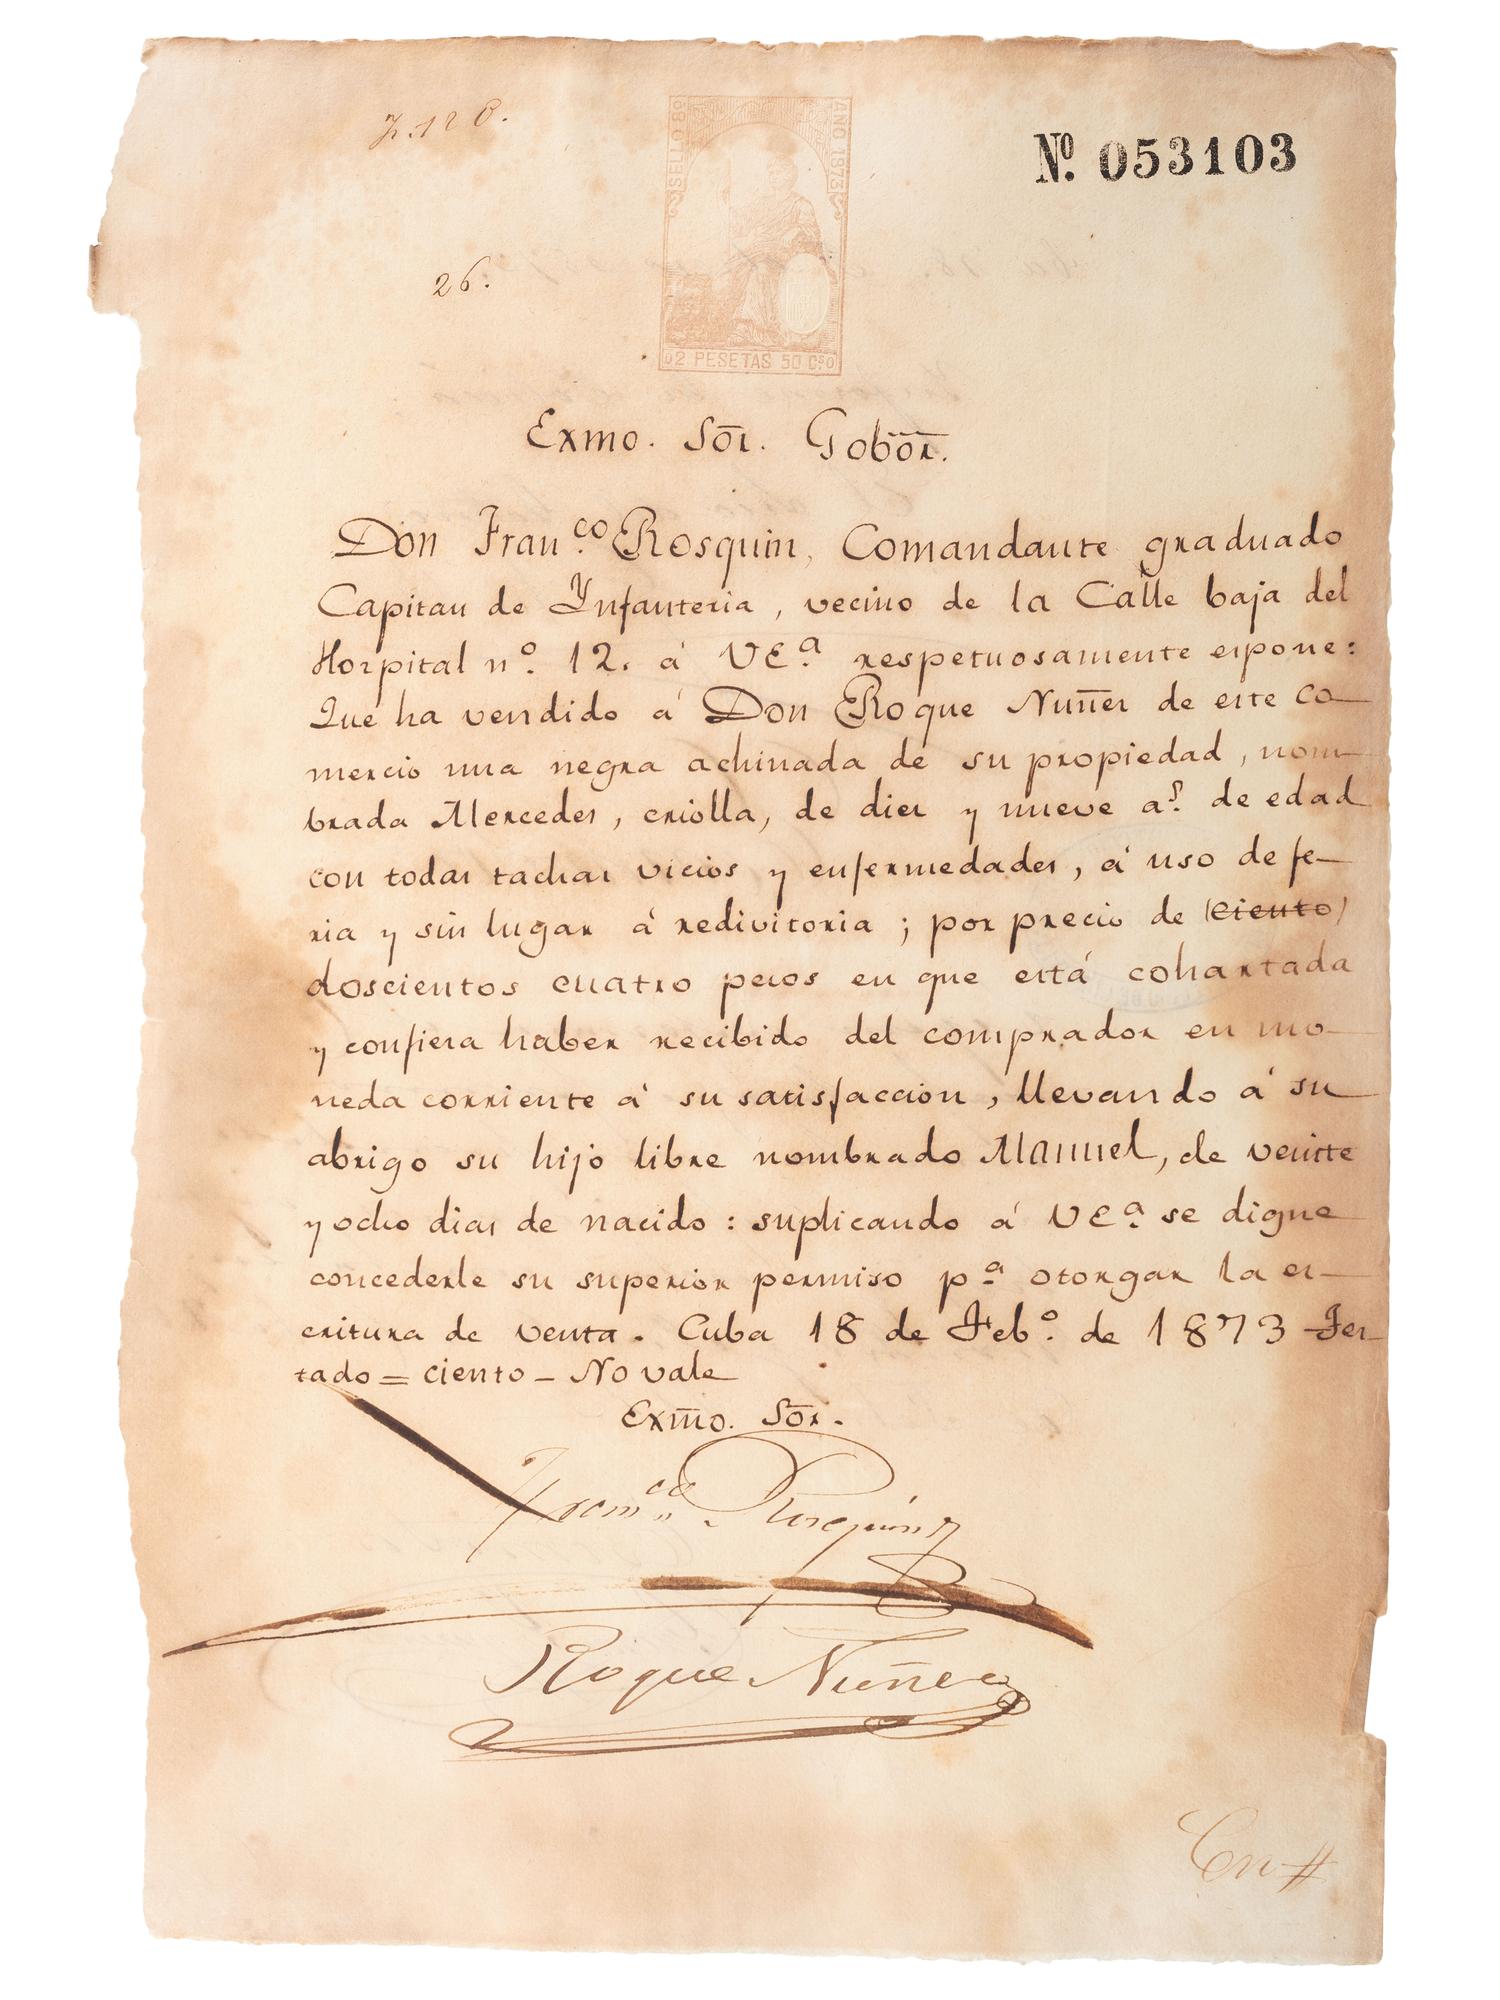 Nº. 053103
SELLO 8º
AÑO 1873
26.
02 PESETAS 50 Cso
Exmo. Sor. Gobor.
Don Franco. Rosquin, Comandante graduado
Capitan de Ynfanteria, vecino de la Calle baja del
Hospital nº. 12. á VEª. respetuosamente espone:
Que ha vendido á Don Roque Nuñes de este co
mercio una negra achinada de su propiedad, nom
brada Mercedes, criolla, de dies y nueve as. de edad
con todas tachas vicios y enfermedades, á uso de fe
ria y sin lugar á redivitoria; por precio de (ciento)
doscientos cuatro pesos en que está cohartada
y confiesa haber recibido del comprador en mo
neda corriente á su satisfaccion, llevando á su
abrigo su hijo libre nombrado Manuel, de veinte
y ocho dias de nacido: suplicando á VEª. se digne
concederle su superior permiso pª. otorgar la es
critura de venta. Cuba 18 de Febº. de 1873 Tes
tado = ciento - No vale
Exmo. Sor.
Franco. Rosquin
Roque Nuñez